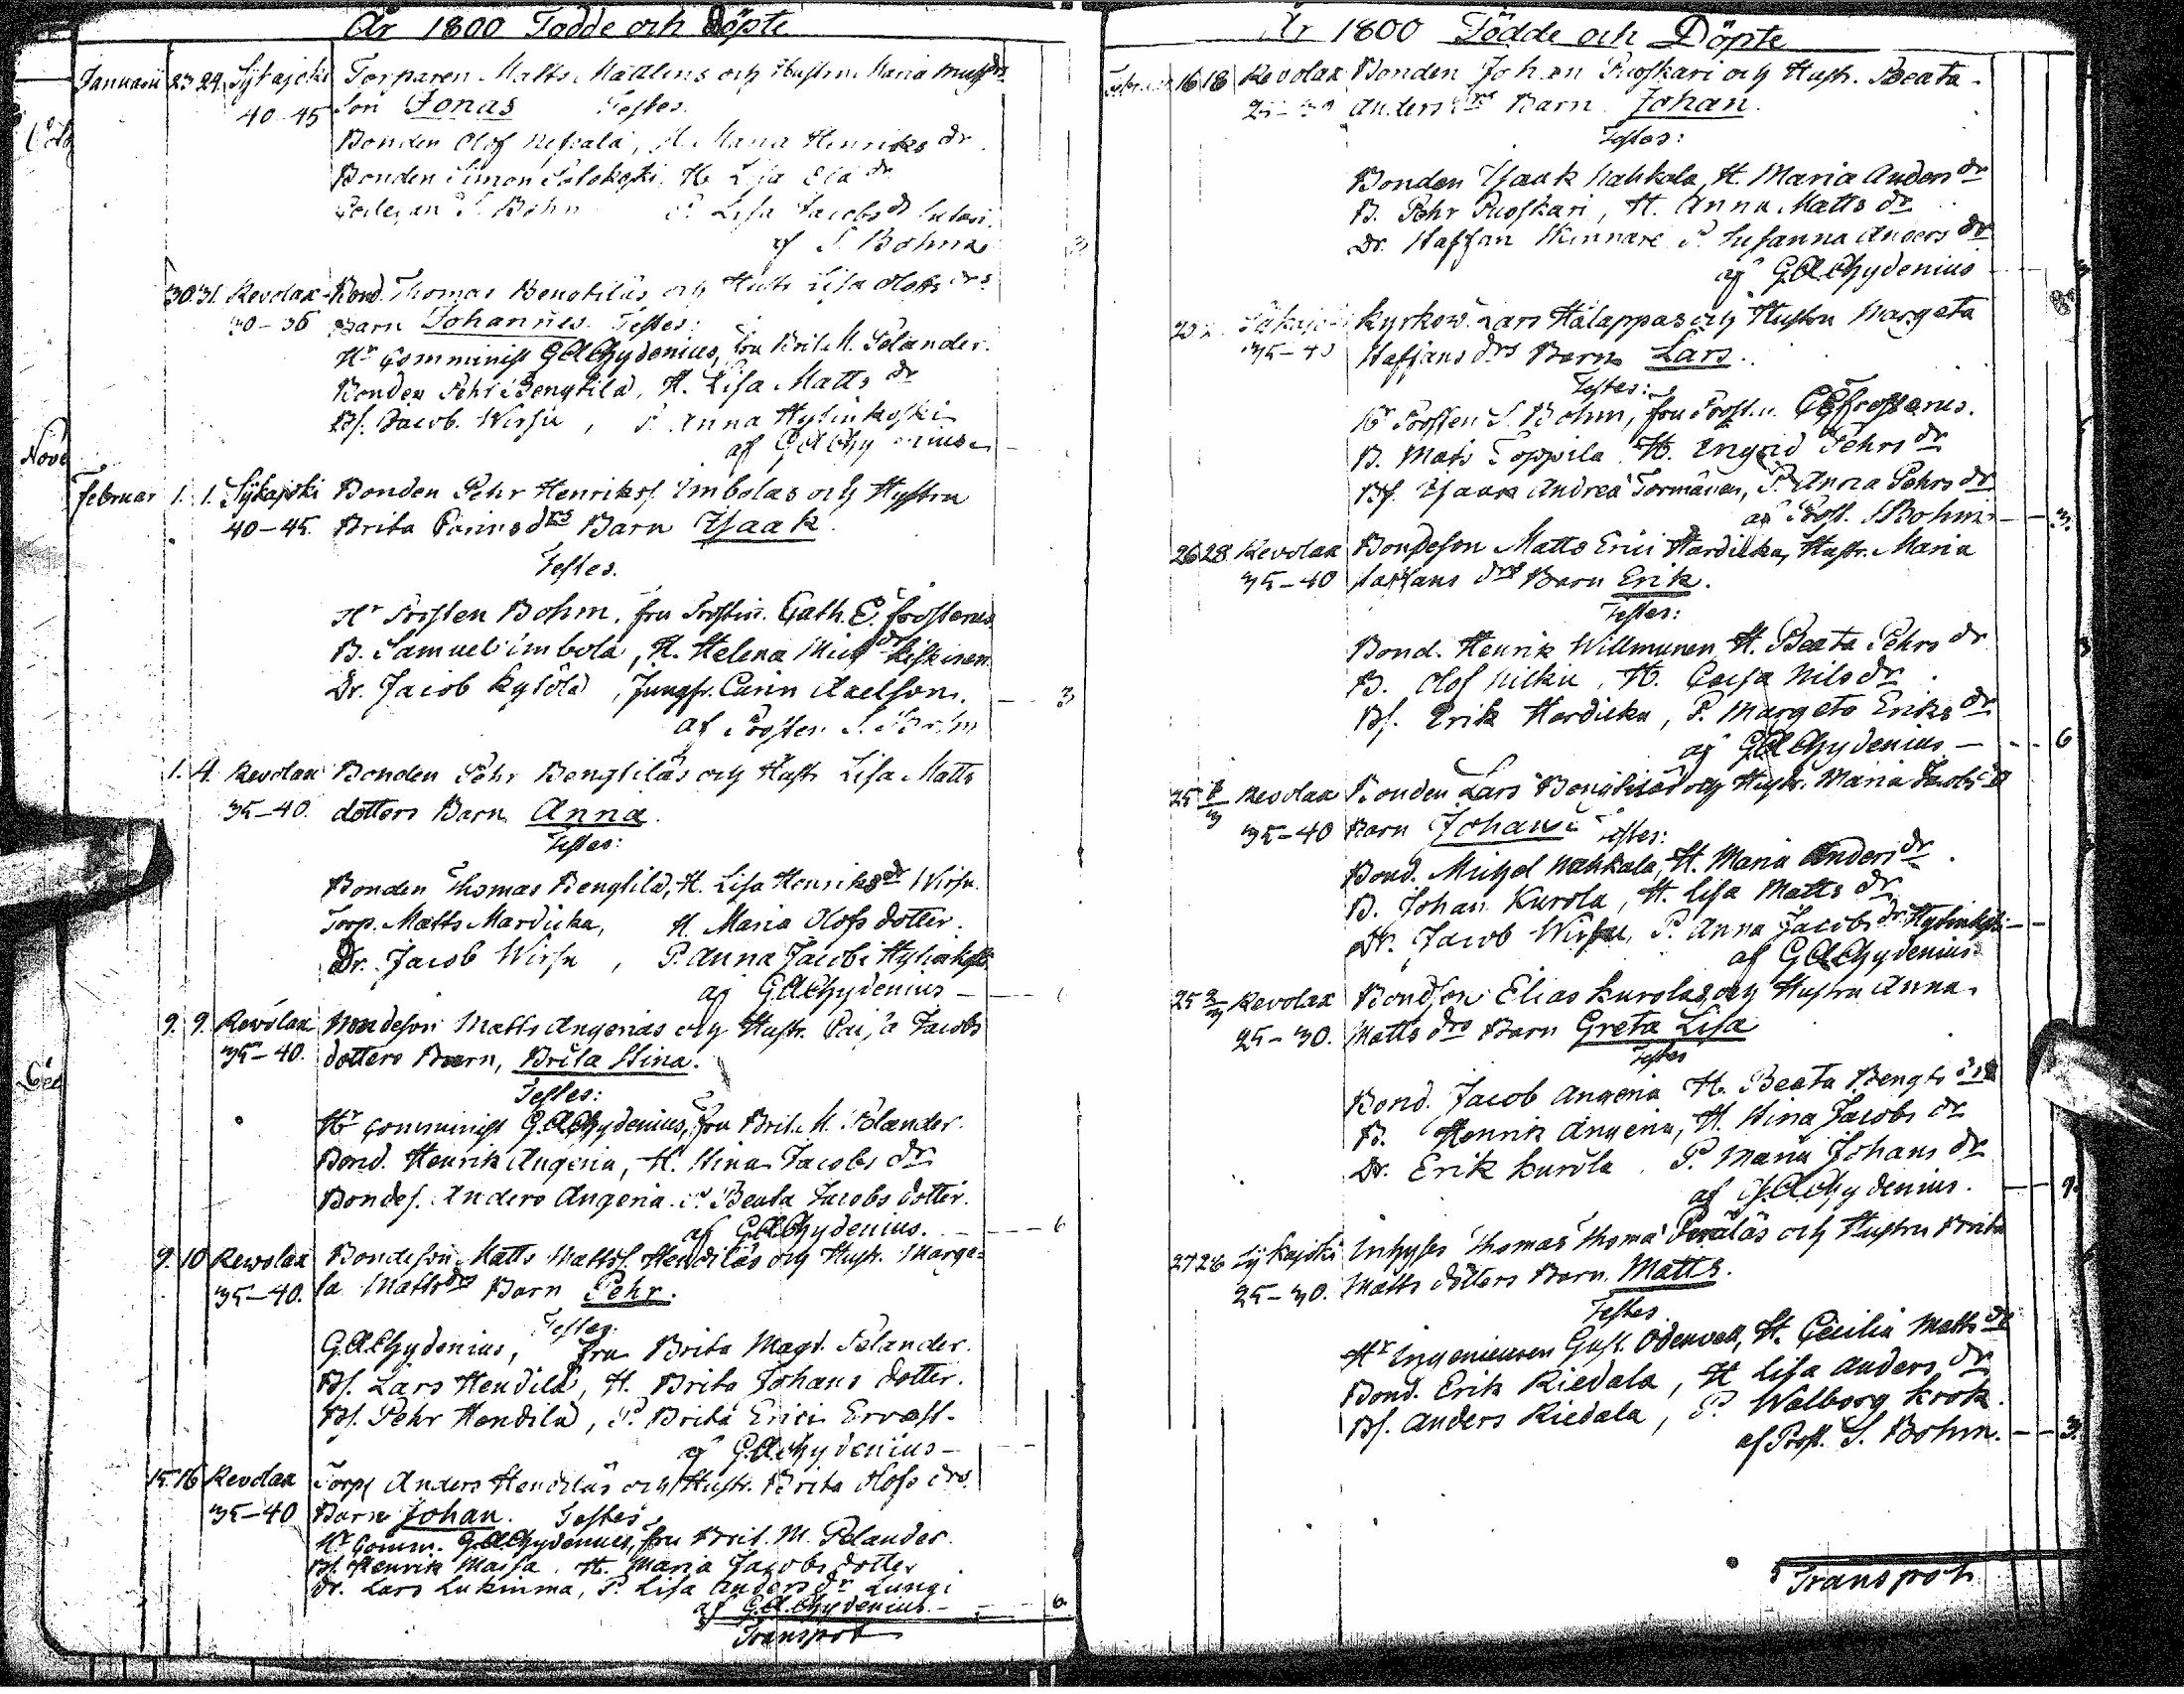 År 1800 Födde och döpte
Januarii 23 24. Sijkajoki Torparen Matts Mattlins och Hustru Maria
40-45 Son Jonas Testes.
Bonden Olof, H. Maria Henriks dr
Bonden Simon, H. Lisa dr
S. Bohm P. Lisa Jacobs dr
af S. Bohm 3
30. 31. Revolax Bond. Thomas Bengtiläs och Hustr. Lisa Olofs drs
30-36 Barn Johannes. Testes:
Hr Comminist G A Chydenius, fru Brit. M. Polander.
Bonden Pehr Bengtilä, H. Lisa Matts dr
Bs. Jacob Wirsu, P. Anna Hylinkoski
af G A Chydenius
Februar 1. 1. Sijkajoki Bonden Pehr Henrikss. Imbolas och Hustru
40-45. Brita drs Barn Isaak.
Testes.
Hr Prosten Bohm, fru Prostin. Cath. E. Frosterus
B. Samuel Imbola, H. Helena dr Keskinen
Dr. Jacob Kylölä, Jungfr. Carin Axelson.
af Prosten S. Bohm 3
1. 4. Revolax Bonden Pehr Bengtiläs och Hustr. Lisa Matts
35-40. dotters Barn Anna.
Testes:
Bonden Thomas Bengtilä, H. Lisa Henriks dr Wirsu.
Torp. Matts Mardicka, H. Maria Olofs dotter.
Dr. Jacob Wirsu, P. Anna Jacobs Hylinkoski
af G A Chydenius
9. 9. Revolax Bondeson Matts Angerias och Hustr. Caisa Jacobs
35-40. dotters Barn, Brita Stina.
Testes:
Hr Comminist G. A Chydenius, fru Brit. M. Polander.
Bond. Henrik Angeria, H. Stina Jacobs dr
Bondes. Anders Angeria. P. Beata Jacobs dotter.
af G A Chydenius. 6
9. 10 Revolax Bondeson Matts Mattss. Hendiläs och Hustr. Marge-
35-40. ta Matts drs Barn Pehr.
Testes.
G A Chydenius, fru Brita Magd. Polander.
Bs. Lars Hendilä, H. Brita Johans dotter.
Bs. Pehr Hendilä, P. Brita Erici Ervast.
af G. A. Chydenius
15 16 Revolax Torp. Anders Hendiläs och Hustr. Brita Olofs drs.
35-40 Barn Johan. Testes
Hr Comm. G A Chydenius, fru Brit. M. Polander.
Bs. Henrik Massa. H. Maria Jacobs dotter
Dr. Lars Lukinma, P. Lisa Anders dr
af G. A. Chydenius. 6
Transport
År 1800 Födde och Döpte
Februar 16 18 Revolax Bonden Johan Puoskari och Hustr. Beata
25-30 Anders drs Barn Johan.
Testes:
Bonden Isaak Nahkola, H. Maria Anders dr
B. Pehr Puoskari, H. Anna Matts dr
Dr. Staffan Skinnare P. Susanna Anders dr
af G A Chydenius
Kyrkow. Lars Hälappas och Hustru Margeta
35-40 Staffans drs Barn Lars.
Testes:
Hr Prosten S. Bohm, fru Prost. C E Frosterus.
B. Mats Toppila H. Ingrid Pehrs dr
Bs. Isaak Andreæ Tormänen, P. Anna Pehrs dr
af Prost. S Bohm 3.
26 28 Revolax Bondeson Matts Erici Hardicka, Hustr. Maria
35-40 Staffans drs Barn Erik.
Testes:
Bond. Henrik Willmunen H. Beata Pehrs dr
B. Olof, H. Caisa Nils dr
Bs. Erik Hardicka, P. Margeta Eriks dr
af G A Chydenius 6
25 Revolax Bonden Lars Bengtiläs och Hustr. Maria Jacobs drs
35-40 Barn Johan Testes:
Bond. Michel Nahkala, H. Maria Anders dr
B. Johan Kurola, H. Lisa Matts dr
Dr. Jacob Wirsu, P. Anna Jacobs dr Hylinkoski
af G A Chydenius
25 2/3 Revolax Bondson Elias Kurolas och Hustru Anna
25-30. Matts drs Barn Greta Lisa
Testes
Bond. Jacob Angeria H. Beata Bengts dr
B. Henrik Angeria, H. Stina Jacobs dr
Dr. Erik Kurola. P. Maria Johans dr
af G A Chydenius.
27 28 Sijkajoki Inhyses Thomas Thomæ Peräläs och Hustru Brita
25-30. Matts dotters Barn Matts.
Testes
Hr Ingenieuren Gust. Odenvall, H. Cecilia Matts dr
Bond. Erik Riedala, H Lisa Anders dr
Bs. Anders Riedala, P. Walborg Krok.
af Prost. S. Bohm. 3.
Transport